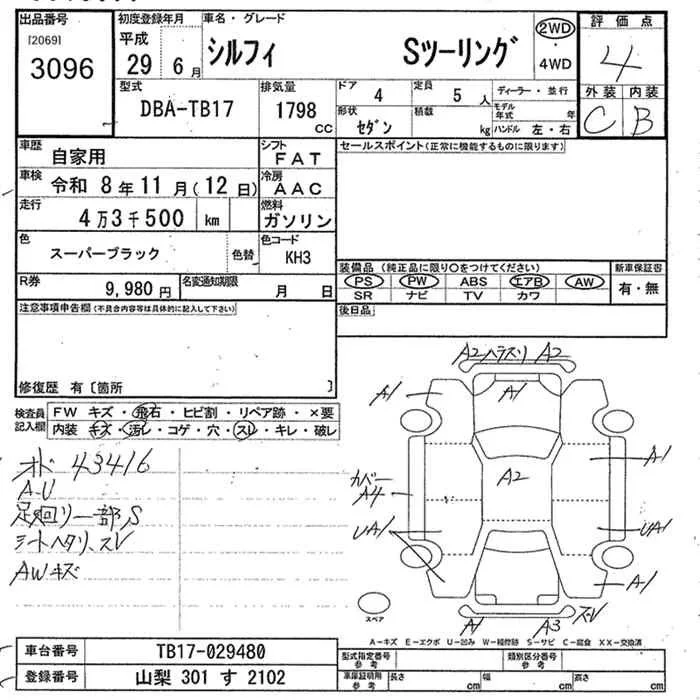 出品番号 初度登録年月 車名・グレード 評価点
[2069] 平成 シルフィ Sツーリング 2WD
3096 29 6月 ・ 4WD 4
型式 排気量 ドア 4 定員 5人 ディーラー・並行 外装 内装
DBA-TB17 1798 cc 形状 セダン 積載 kg モデル年式 年 C B
ハンドル 左・右
車歴 自家用 シフト FAT セールスポイント(正常に機能するものに限ります)
車検 令和 8年11月(12日) 冷房 AAC
走行 4万3千500 km 燃料 ガソリン
色 スーパーブラック 色替 色コード KH3
装備品(純正品に限り○をつけてください) 新車保証書
R券 9,980円 名変通知期限 月 日 PS PW ABS エアB AW 有・無
SR ナビ TV カワ
注意事項申告欄(不具合内容等は具体的に記入して下さい) 後日品
修復歴 有〔箇所 〕
検査員記入欄 FW キズ・飛石・ヒビ割・リペア跡・×要
内装 キズ・汚レ・コゲ・穴・スレ・キレ・破レ
A2 ヘラスリ A2
A1 A1
オド 43416
A-U
足廻リ一部S
シートヘタリ、スレ
AWキズ
A1
A2
カバー
A4
UA1 UA1
A-1
スペア
A1 A3 スレ
A-キズ E-エクボ U-凹み W-補修跡 S-サビ C-腐食 XX-交換済
車台番号 TB17-029480 型式指定番号 参考 類別区分番号 参考
登録番号 山梨 301 す 2102 車庫証明用 参考 長さ cm 幅 cm 高さ cm